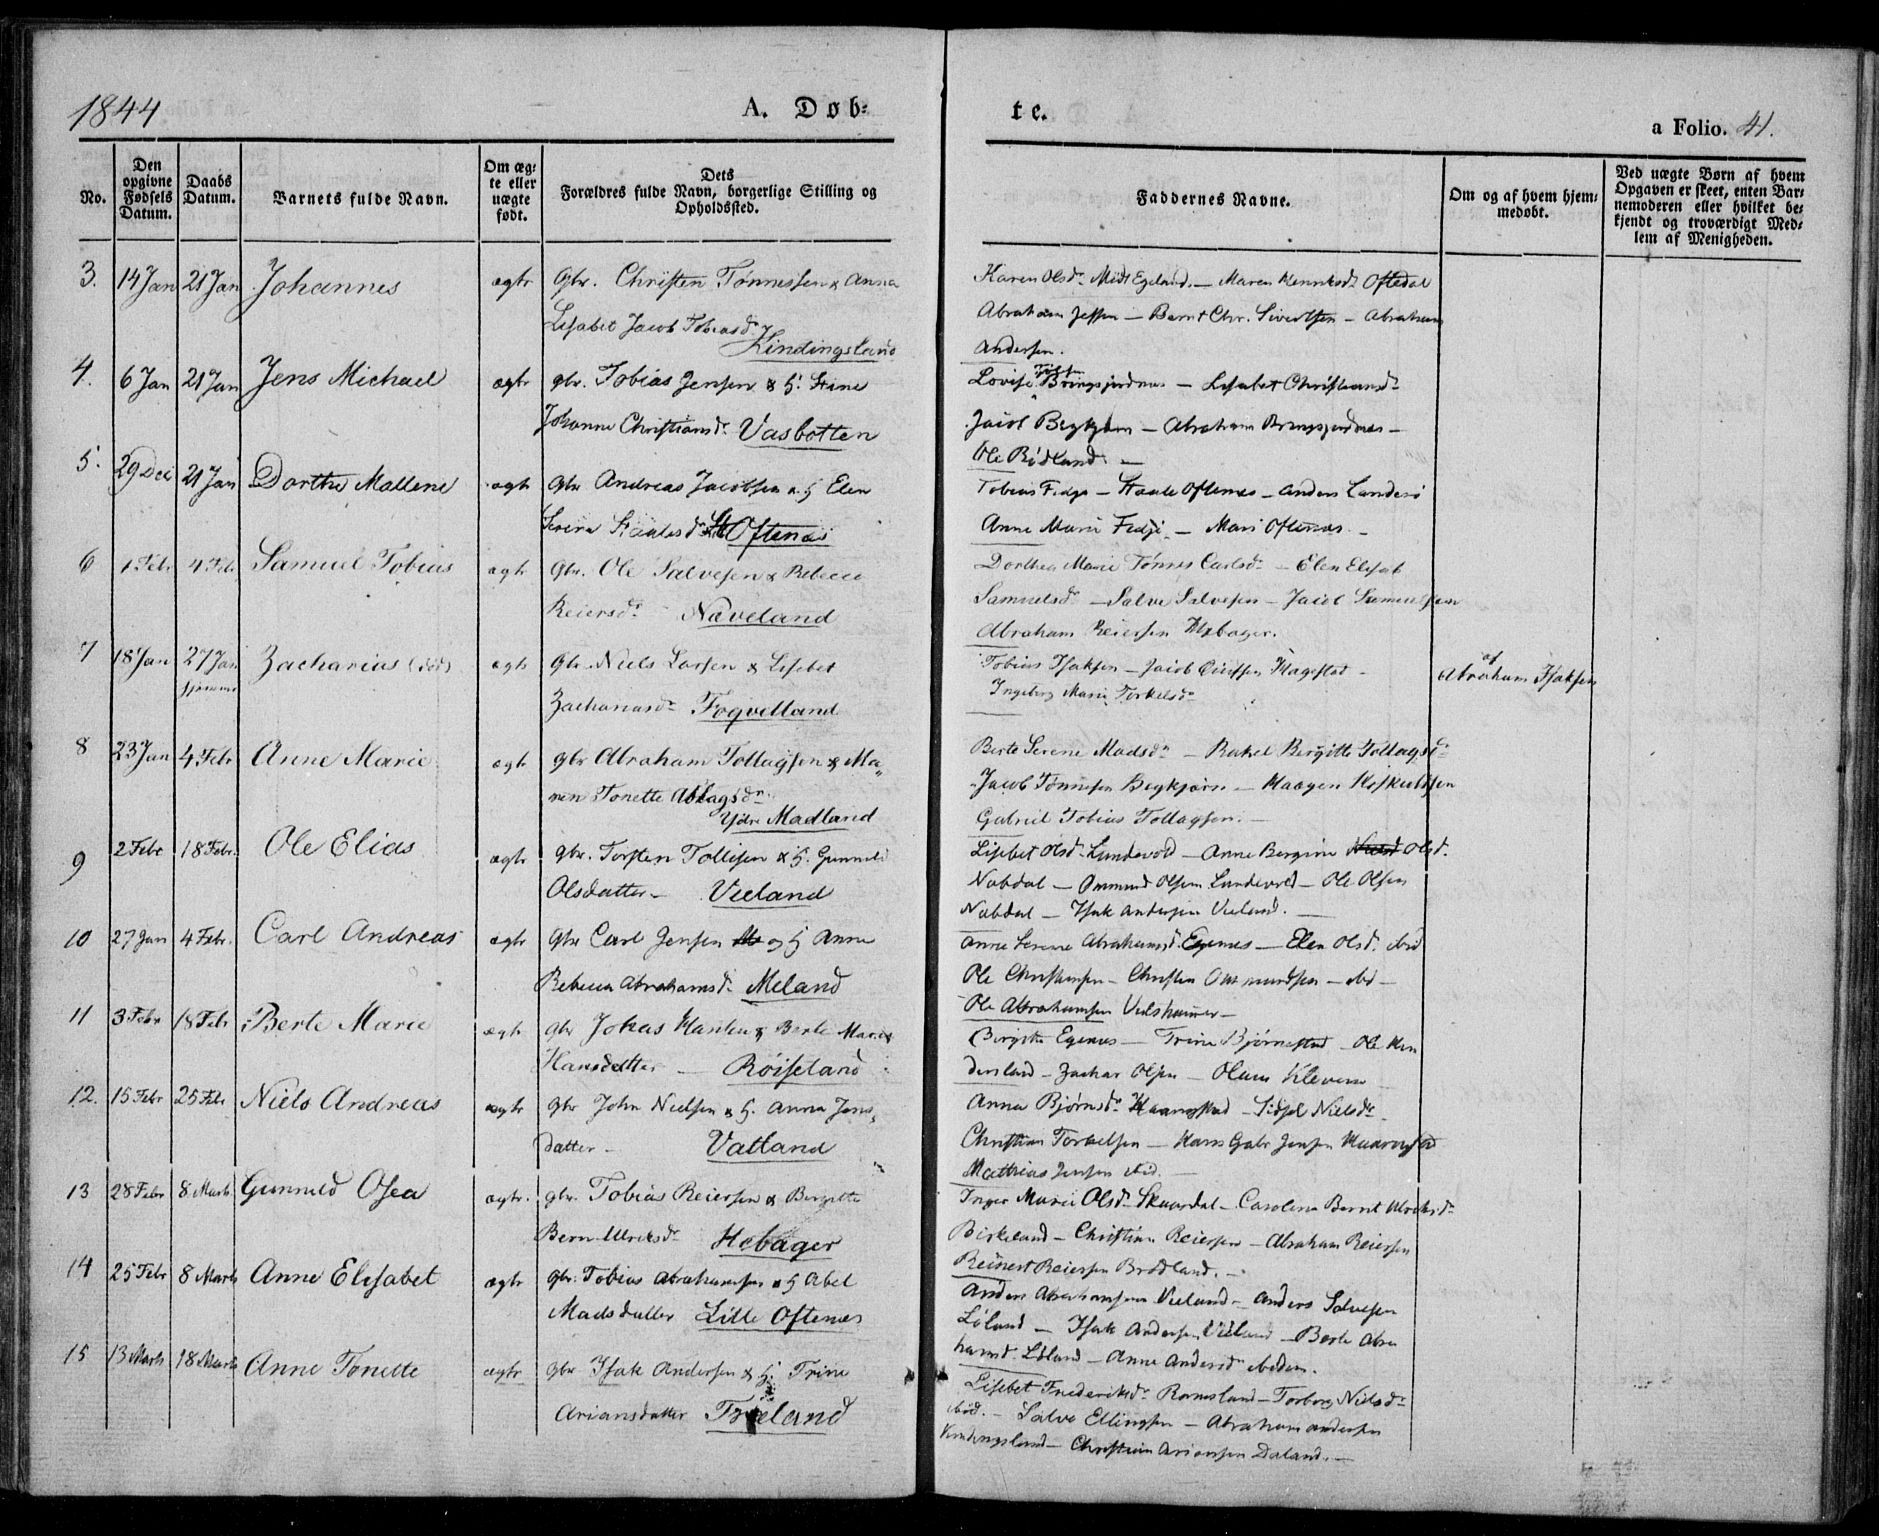 1844
A. Døb-
te.
a Folio. 41.
No.
Den opgivne Fødsels Datum.
Daabs Datum.
Barnets fulde Navn.
Om ægte eller uægte født.
Dets Forældres fulde Navn, borgerlige Stilling og Opholdssted.
Faddernes Navne.
Om og af hvem hjemmedøbt.
Ved uægte Børn af hvem Opgaven er skeet, enten Barnemoderen eller hvilket bekjendt og troværdigt Medlem af Menigheden.
3. 14 Jan 21 Jan Johannes ægte Gbr. Christen Tønnessen & Anna
Lisabet Jacob Tobiasdr
Kindingsland
Karen Olsdr Midt Egeland. — Maren Henriksdr Oftedal
Abraham Jessen — Barnt Chr. Sivertsen — Abraham
Andersen.
4. 6 Jan 21 Jan Jens Michael ægte gbr. Tobias Jensen & H. Stine
Johanne Christiansdr. Vasbotten
Lovise Bringsjordnes — Lisabet Christiansdr
Jacob Begkjørn — Abraham Bringsjordnes —
Ole Rødland. —
5. 29 Dec 21 Jan Dorthe Mallene ægte gbr Andreas Jacobsen & H Elen
Serine Staalesdr Lit Oftenæs
Tobias Fedje — Staale Oftenes — Anders Landerø
Anne Marie Fedje. — Mari Oftenæs. —
6 1 Febr 4 Febr Samuel Tobias ægte Gbr. Ole Salvesen & Rebecca
Reiersdr Næveland
Dorthea Marie Tønnes Carlsdr — Elen Elisab
Samuelsdr — Salve Salvesen — Jacob Samuelsen
Abraham Reiersen Hobager.
7 18 Jan 27 Jan hjemme Zacharias (død) ægte Gbr. Niels Larsen & Lisebet
Zachariasdr Foqvelland
Tobias Isaksen — Jacob Hagestad —
Ingeborg Marie Torkelsdr
af
Abraham Isaksen
8 23 Jan 4 Febr Anne Marie ægte gbr Abraham Tollagsen & Ma-
ren Tonette Aslagsdr
Ydre Madland
Berte Serene Madsdr — Rakel Bergitte Tollagsdr
Jacob Tønnesen Begkjørn — Haagen
Gabriel Tobias Tollagsen. —
9 2 Febr 18 Febr. Ole Elias ægte gbr. Torsten Tollisen & H. Gunnild
Olsdatter — Vieland
Lisebet Olsdr Lundevold — Anne Bergine Olsd.
Nabdal — Ommund Olsen Lundevold — Ole Olsen
Nabdal — Isak Andersen Vieland. —
10 27 Jan 4 Febr. Carl Andreas ægte Gbr Carl Jensen og H Anne
Rebecca Abrahamsdr Meland
Anne Serene Abrahamsd. Egenes — Elen Olsd. ibid
Ole Christensen — Christen Ommundsen — ibid —
Ole Abrahamsen
11 3 Febr 18 Febr Berte Marie ægte gbr Johas Hansen & Berte Marie
Hansdatter — Røiseland
Birgitte Egenes — Trine Bjørnestad — Ole Hen
dersland — Zachar Olsen — Oluus Kleven —
12. 15 Febr 25 Febr Niels Andreas ægte gbr John Nielsen & H. Anna Jens-
datter — Vatland
Anna Bjørnsdr Haangstad — Sidsel Nielsdr
Christian Torkelsen — Hans Gabr Jensen
Mathias Jensen ibid. —
13 28 Febr 8 Marts Gunnild Osea ægte. gbr. Tobias Reiersen & Bergitte
Bern Ulriksdr Hobager
Inger Marie Olsdr Skaardal — Carolina Bernt Ulriksdr
Birkeland — Christian Reiersen — Abraham Reiersen
Reinert Reiersen Brødland. —
14 25 Febr 8 Marts Anne Elisabet ægte gbr. Tobias Abrahamsen & H Abel
Madsdatter Lille Oftenes
Anders Abrahamsen Vieland — Anders Salvesen
Løland — Isak Andersen Vieland — Berte Abra
hamsd. Løland — Anne Andersdr ibidem.
15 13 Marts 18 Marts Anne Tonette ægte gbr Isak Andersen & H. Trine
Ariansdatter Træland
Lisebet Frederiksdr Romsland — Torborg Nielsdr
ibid. — Salve Ellingsen — Abraham Andersen
Kindingsland — Christian Ariansen Daland. —